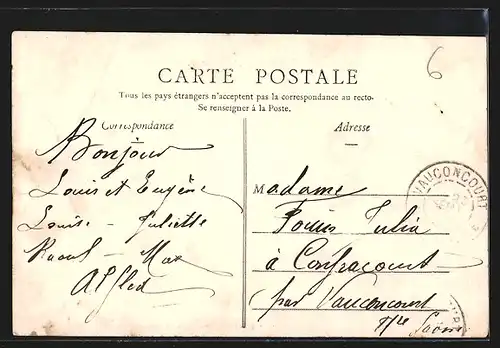 6
CARTE POSTALE
Tous les pays étrangers n'acceptent pas la correspondance au recto.
Se renseigner à la Poste.
Correspondance
Adresse
Bonjour
Louis et Eugène
Louise - Juliette
Raoul - Max
Alfled
Madame
Julia
à Confracourt
par Vauconcourt
Hte Saône
VAUCONCOURT